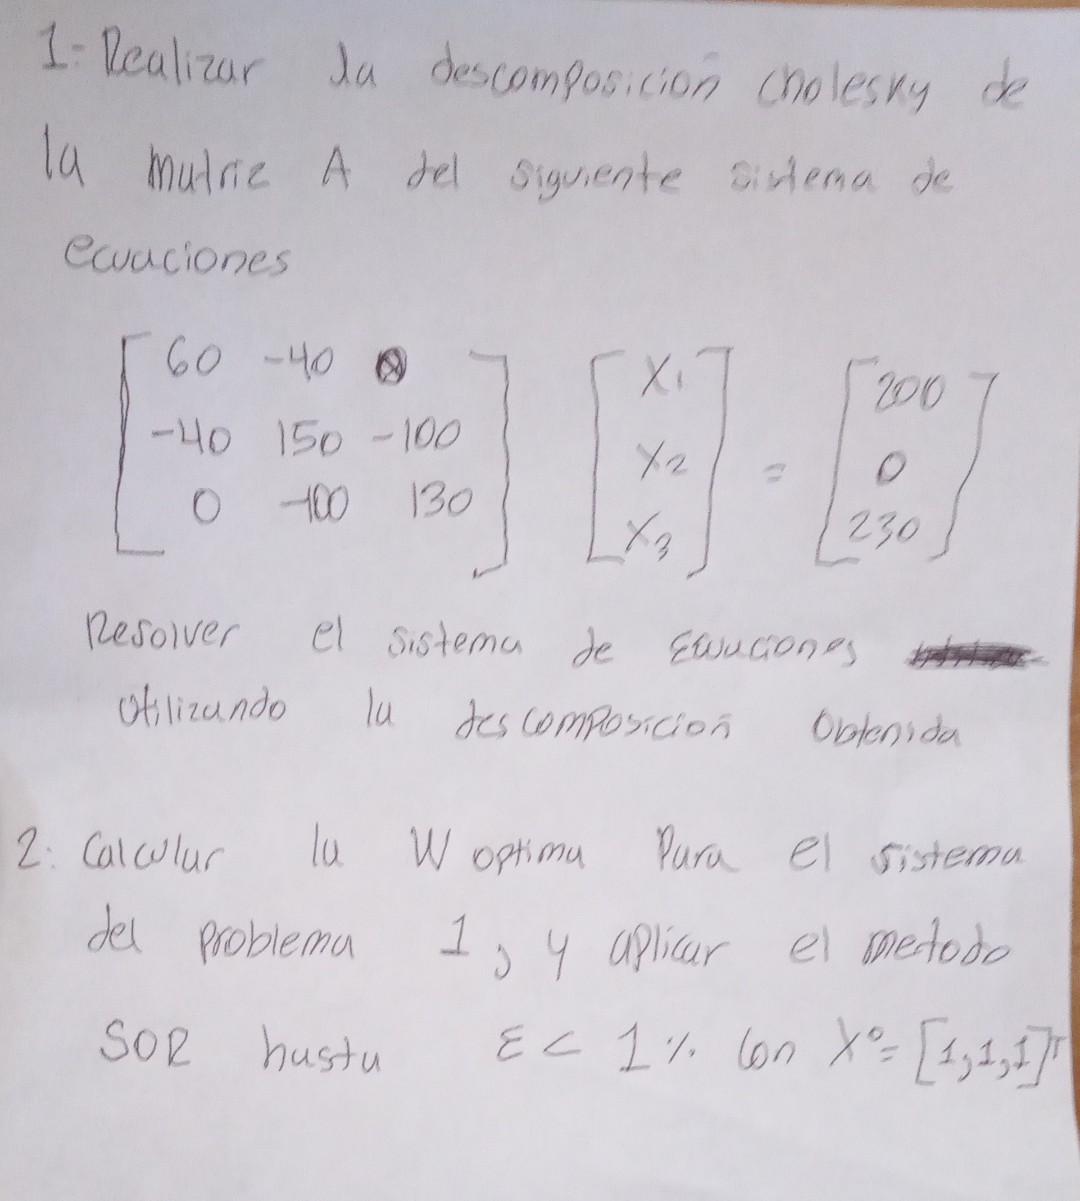 1- Realizar la descomposición cholesky de
la matriz A del siguiente sistema de
ecuaciones
60 -40 0
-40 150 -100
0 -100 130
X1
X2
X3
=
200
0
230
Resolver el sistema de Ecuaciones
Utilizando la descomposición Obtenida
2: Calcular la W optima Para el sistema
del problema 1, y aplicar el metodo
SOR hasta ε < 1 % Con X⁰= [1,1,1]ᵀ